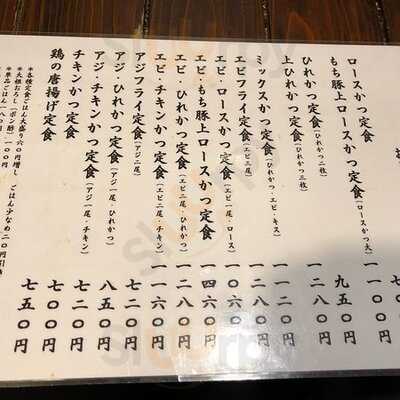 ロースかつ定食
もち豚上ロースかつ定食（ロースかつ大） 一一〇〇円
ひれかつ定食（ひれかつ二枚） 九五〇円
上ひれかつ定食（ひれかつ三枚） 一二八〇円
ミックスかつ定食（ひれかつ・エビ・キス） 一一二〇円
エビフライ定食（エビ三尾） 一二八〇円
エビ・ロースかつ定食（エビ一尾・ロース） 一〇六〇円
エビ・もち豚上ロースかつ定食 一四六〇円
エビ・ひれかつ定食（エビ一尾、ひれかつ） 一二八〇円
エビ・チキンかつ定食（エビ二尾・チキン） 一一六〇円
アジフライ定食（アジ二尾） 七二〇円
アジ・ひれかつ定食（アジ一尾、ひれかつ） 八五〇円
アジ・チキンかつ定食（アジ一尾・チキン） 七二〇円
チキンかつ定食 七五〇円
鶏の唐揚げ定食 七五〇円
＊各種定食ごはん大盛り六〇円増し ごはん少なめ二〇円引き
＊大根おろし（ポン酢）一〇〇円
＊単品ごはん